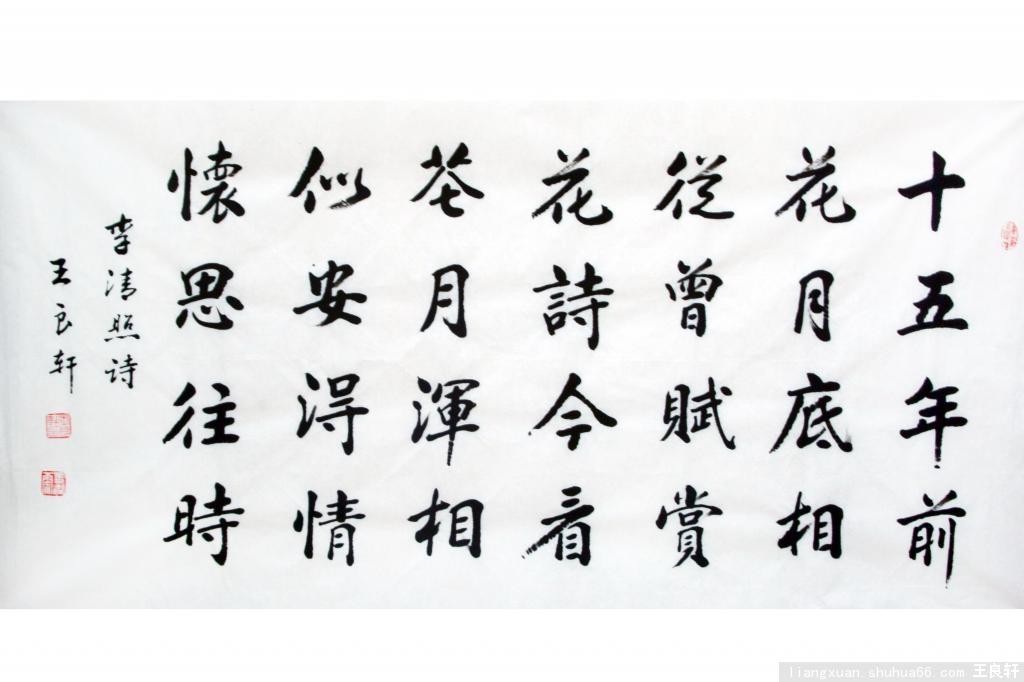 十五年前
花月底相
從曾賦賞
花詩今看
花月渾相
似安得情
懷思往時
李清照诗
王良轩
liangxuan.shuhua66.com 王良轩